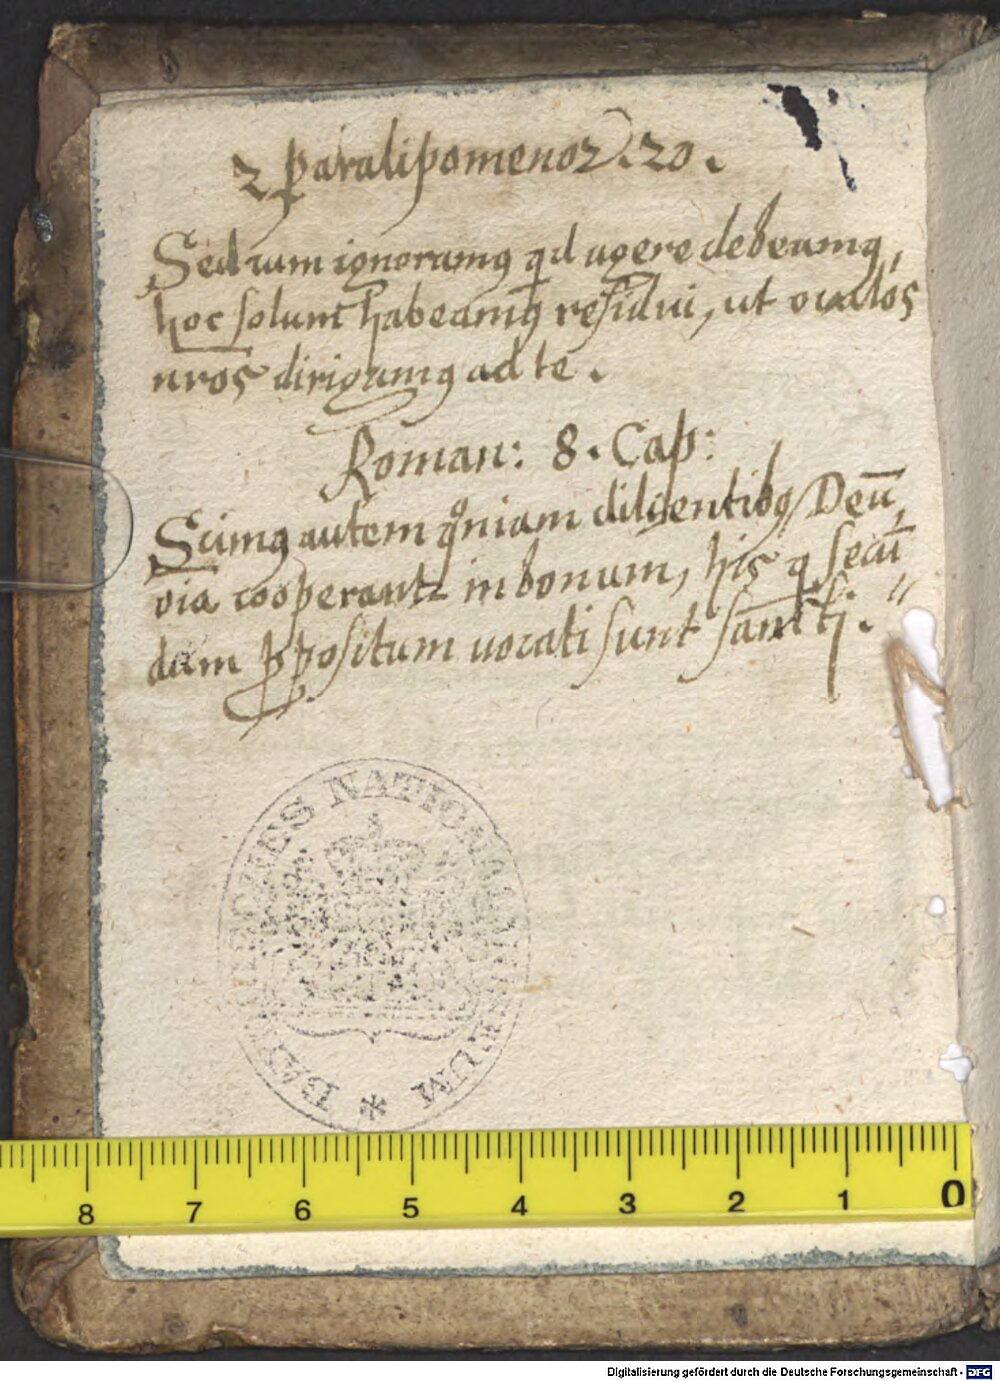 2 paralipomenoꝝ. 20.
Sed cum ignoramꝰ qd agere debeamꝰ,
hoc solum habeamꝰ residui, ut oculos
nr̄os dirigamus ad te.
Roman: 8. Cap:
Scimꝰ autem qͦniam diligentibꝰ Deū,
oīa cooperantꝛ in bonum, his q secū
dum ꝓpositum uocati sunt sancti.
BAYERISCHES NATIONALMUSEUM *
8 7 6 5 4 3 2 1 0
Digitalisierung gefördert durch die Deutsche Forschungsgemeinschaft - DFG